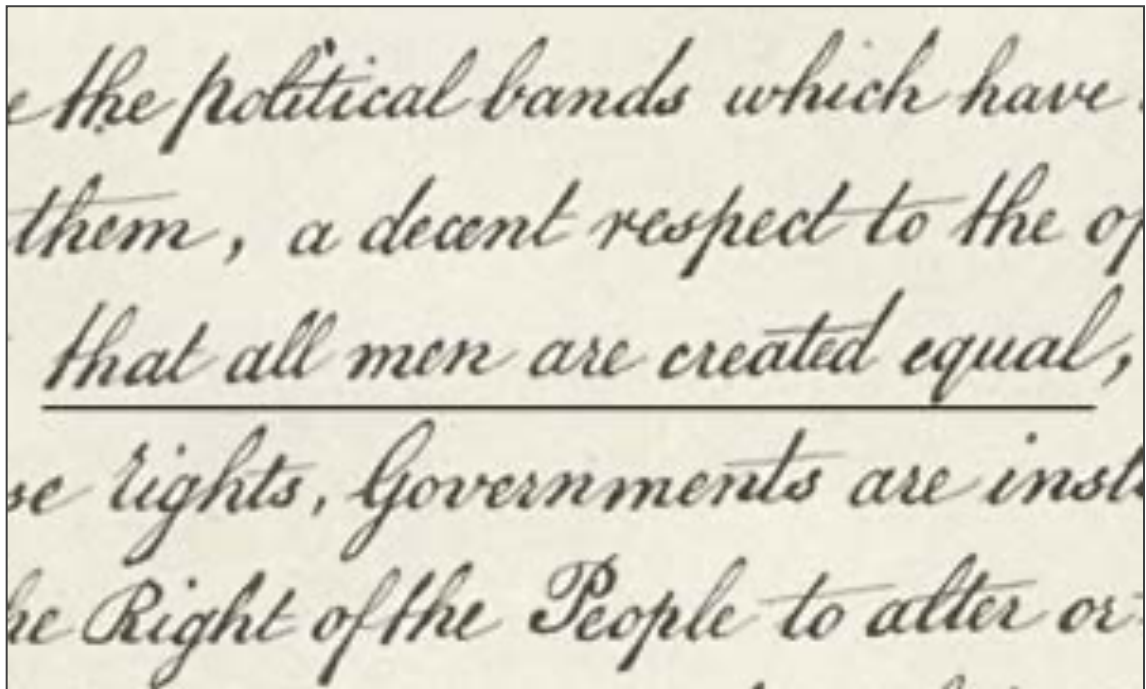 e the political bands which have
them, a decent respect to the op
that all men are created equal,
se rights, Governments are inst
he Right of the People to alter or